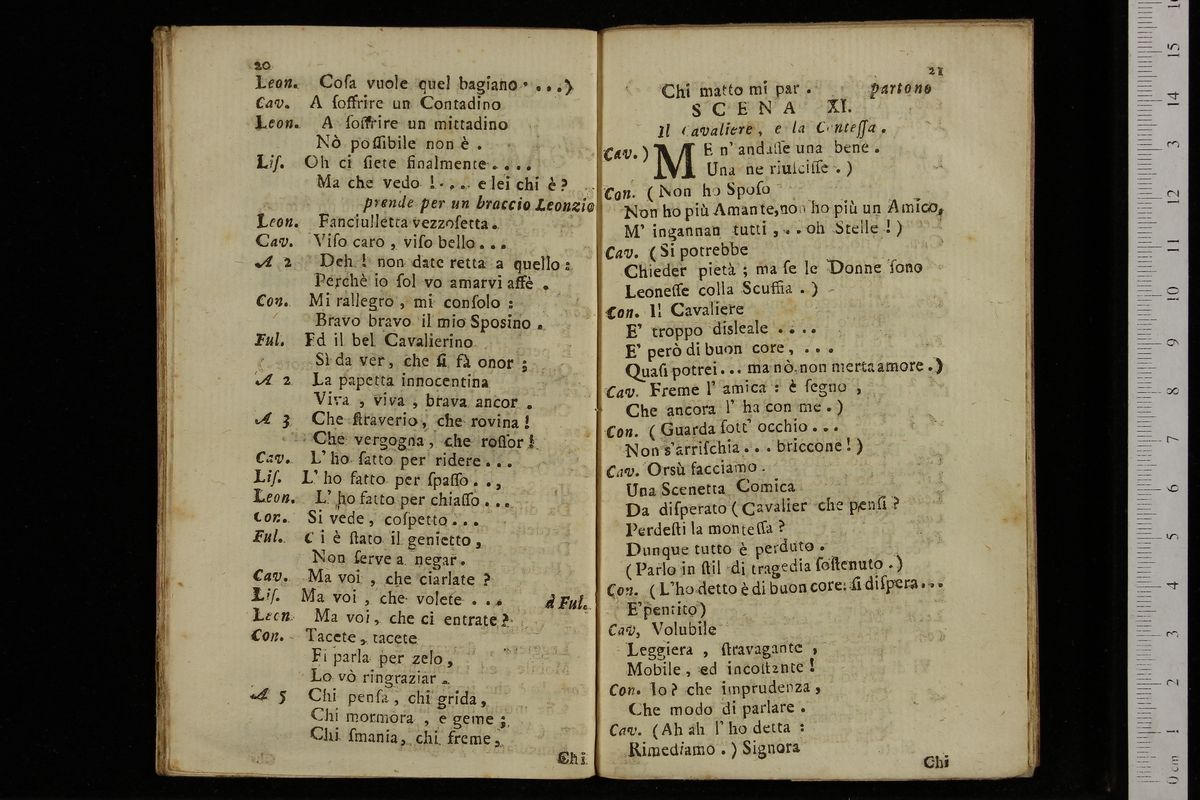 20
Leon. Coſa vuole quel bagiano . . . .)
Cav. A ſoffrire un Contadino
Leon. A ſoffrire un mittadino
Nò poſſibile non è .
Liſ. Oh ci ſiete finalmente . . . .
Ma che vedo ! . . . e lei chi è ?
prende per un braccio Leonzio
Leon. Fanciulletta vezzoſetta .
Cav. Viſo caro , viſo bello . . .
A 2 Deh ! non date retta a quello :
Perchè io ſol vo amarvi affè .
Con. Mi rallegro , mi conſolo :
Bravo bravo il mio Spoſino .
Ful. Ed il bel Cavalierino
Sì da ver , che ſi fà onor ;
A 2 La papetta innocentina
Viva , viva , brava ancor .
A 3 Che ſtraverio , che rovina !
Che vergogna , che roſſor !
Cav. L' ho fatto per ridere . . .
Liſ. L' ho fatto per ſpaſſo . . ,
Leon. L' ho fatto per chiaſſo . . .
Con. Si vede , coſpetto . . .
Ful. C i è ſtato il genietto ,
Non ſerve a negar .
Cav. Ma voi , che ciarlate ?
Liſ. Ma voi , che volete . . . à Ful.
Leon Ma voi , che ci entrate ?
Con. Tacete , tacete
Fi parla per zelo ,
Lo vò ringraziar .
A 5 Chi penſa , chi grida ,
Chi mormora , e geme ;
Chi ſmania , chi freme ,
Chi
21
Chi matto mi par . partono
SCENA XI.
Il Cavaliere , e la Conteſſa .
Cav. ) ME n' andaſſe una bene .
Una ne riuſciſſe . )
Con. ( Non ho Spoſo
Non ho più Amante, non ho più un Amico,
M' ingannan tutti , . . oh Stelle ! )
Cav. ( Si potrebbe
Chieder pietà ; ma ſe le Donne ſono
Leoneſſe colla Scuffia . )
Con. Il Cavaliere
E' troppo disleale . . . .
E' però di buon core , . . .
Quaſi potrei . . . ma nò non merta amore . )
Cav. Freme l' amica : è ſegno ,
Che ancora l' ha con me . )
Con. ( Guarda ſott' occhio . . .
Non s'arriſchia . . . briccone ! )
Cav. Orsù facciamo .
Una Scenetta Comica
Da diſperato ( Cavalier che penſi ?
Perdeſti la monteſſa ?
Dunque tutto è perduto .
( Parlo in ſtil di tragedia ſoſtenuto . )
Con. ( L'ho detto è di buon core: ſi diſpera . . .
E' pentito )
Cav, Volubile
Leggiera , ſtravagante ,
Mobile , ed incoſtante !
Con. Io ? che imprudenza ,
Che modo di parlare .
Cav. ( Ah ah l' ho detta :
Rimediamo . ) Signora
Chi
0 cm 1 2 3 4 5 6 7 8 9 10 11 12 13 14 15 16